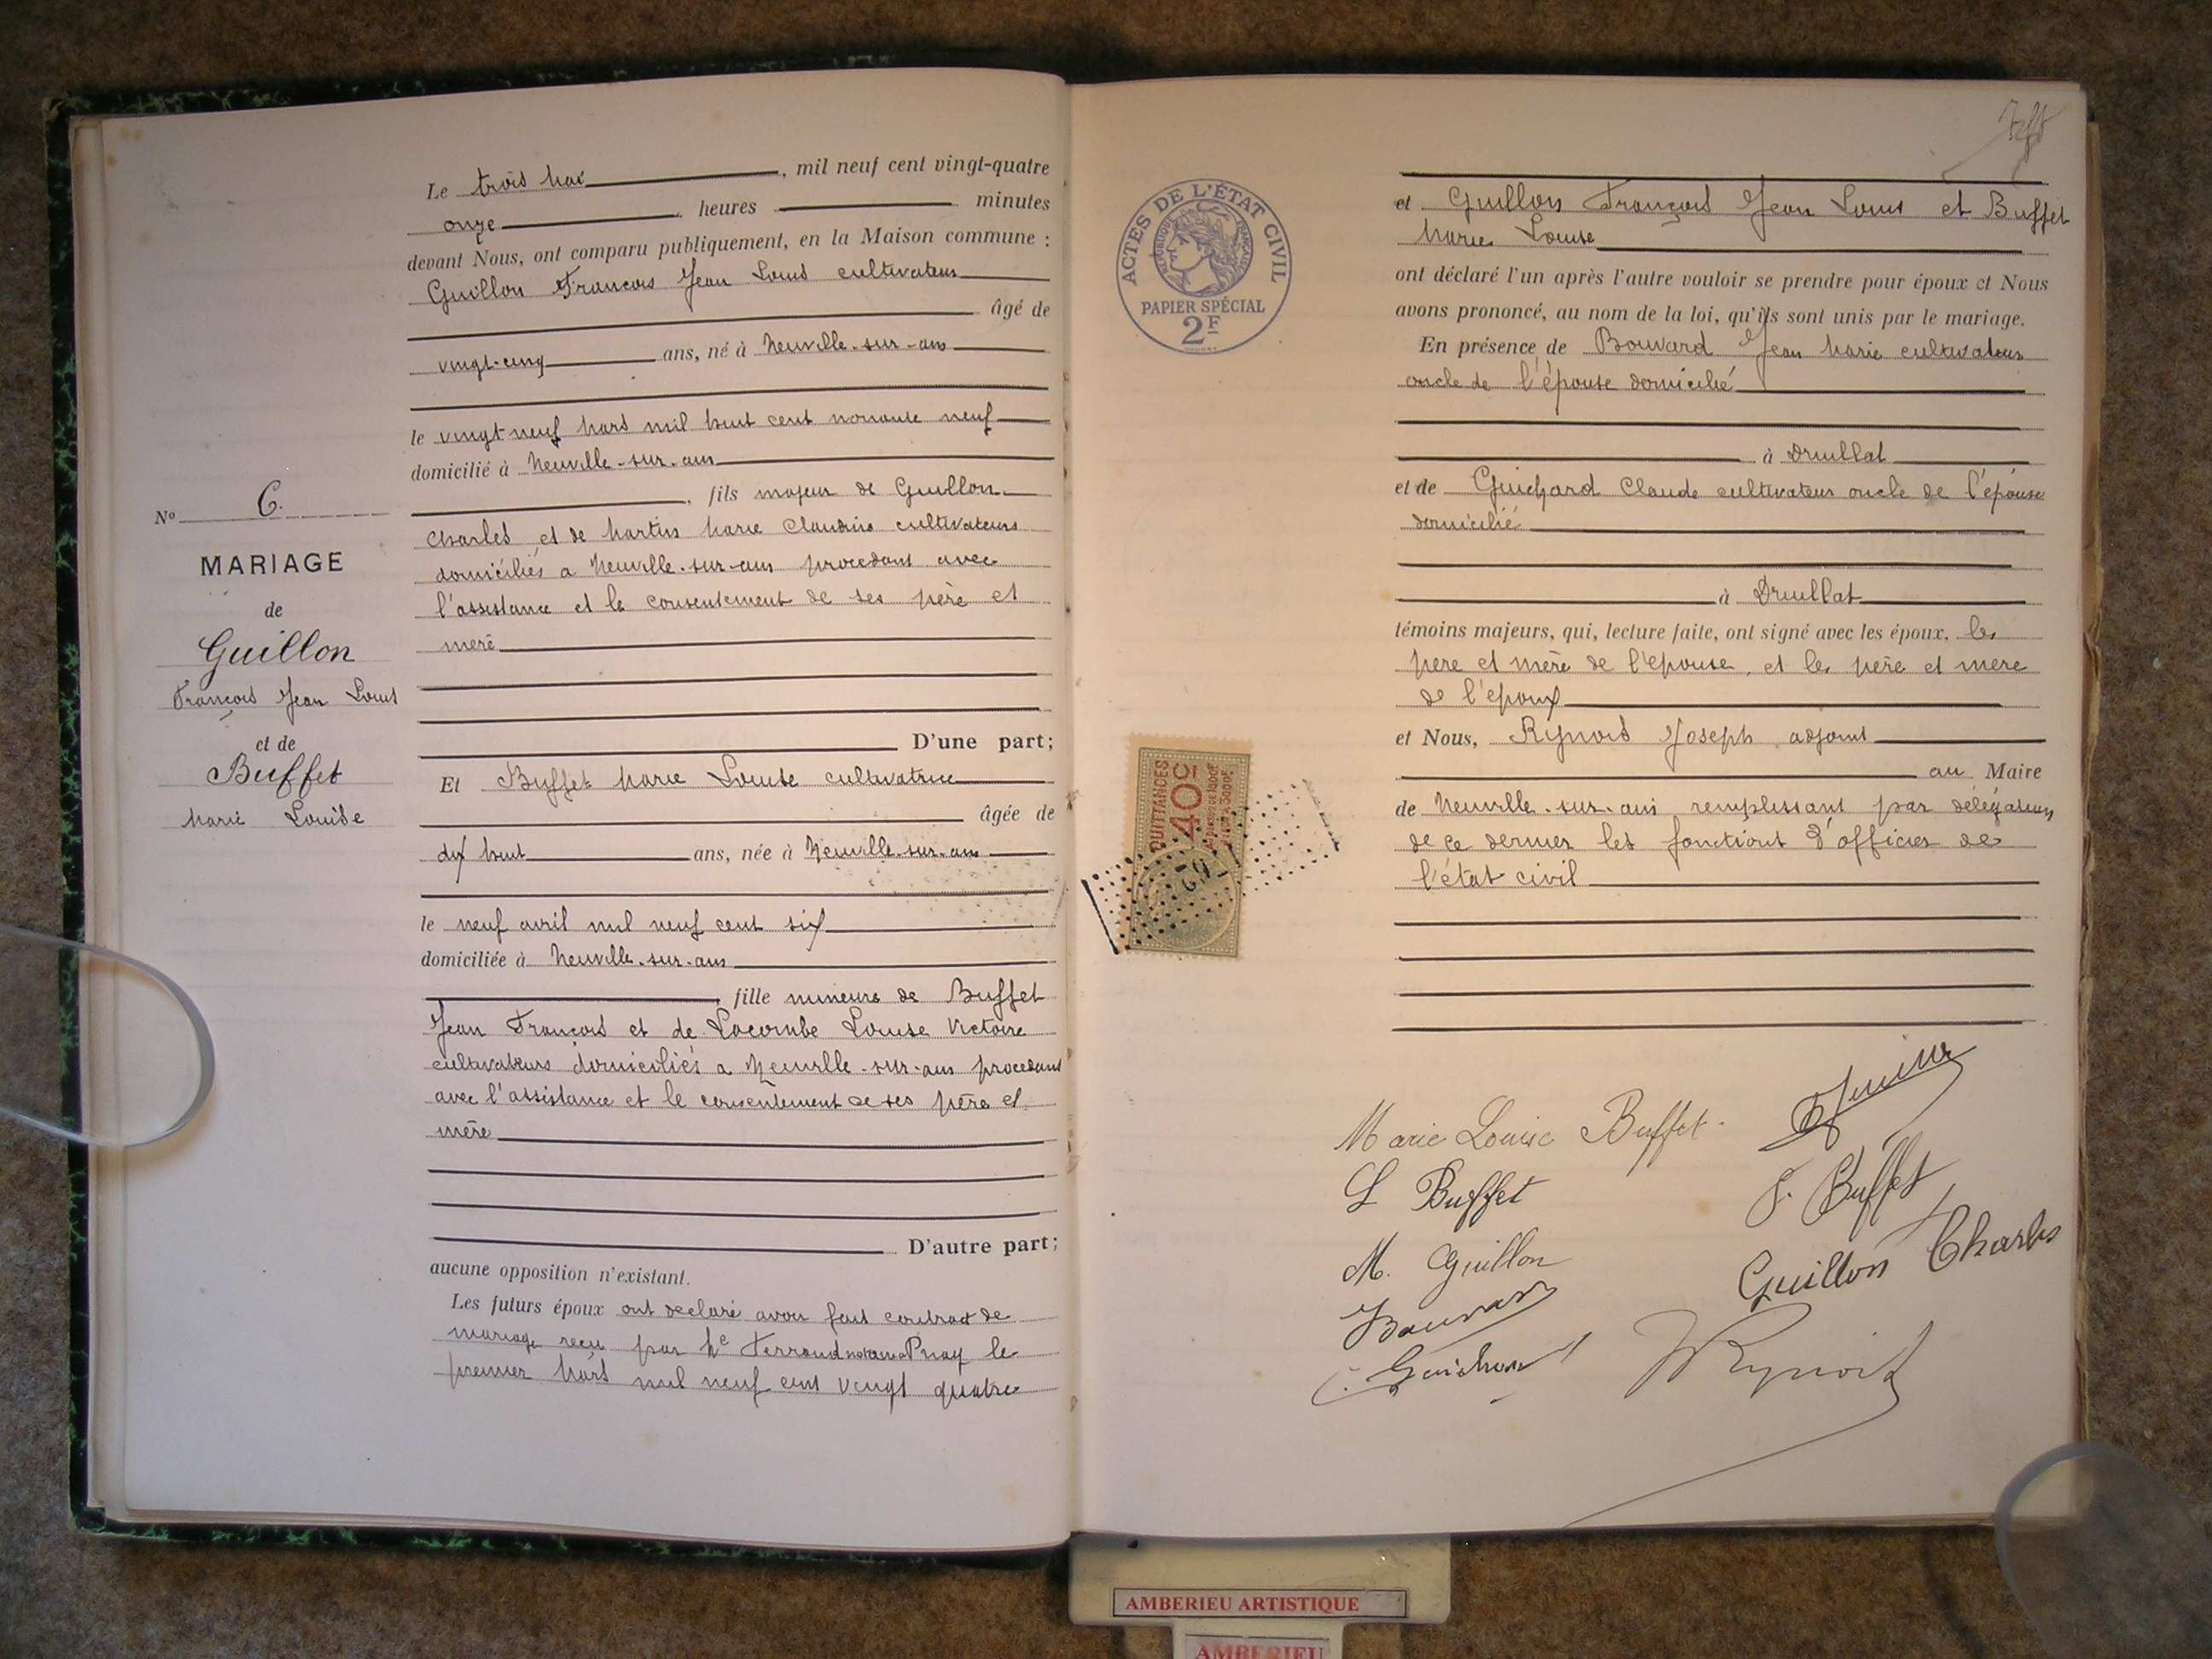 Le trois Mai, mil neuf cent vingt-quatre
onze heures minutes
devant Nous, ont comparu publiquement, en la Maison commune :
Guillon François Jean Louis cultivateur
âgé de
vingt-cinq ans, né à Neuville-sur-ain
le vingt neuf Mars mil huit cent nonante neuf
domicilié à Neuville-sur-ain
, fils majeur de Guillon
Charles et de Martin Marie Claudine cultivateurs
domiciliés a Neuville-sur-ain procedant avec
l'assistance et le consentement de ses père et
mere
D'une part;
Et Buffet Marie Louise cultivatrice
âgée de
dix huit ans, née à Neuville-sur-ain
le neuf avril mil neuf cent six
domiciliée à Neuville-sur-ain
, fille mineure de Buffet
Jean François et de Lacombe Louise Victoire
cultivateurs domiciliés a Neuville-sur-ain procedant
avec l'assistance et le consentement de ses père et
mère
D'autre part;
aucune opposition n'existant.
Les futurs époux ont declaré avoir fait contrat de
mariage recu par Me Ferraud notaire a Priay le
premier Mars mil neuf cent vingt quatre
No 6.
MARIAGE
de
Guillon
François Jean Louis
et de
Buffet
Marie Louise
ACTES DE L'ÉTAT CIVIL
RÉPUBLIQUE FRANÇAISE
PAPIER SPÉCIAL
2F
QUITTANCES
40c
et Guillon François Jean Louis et Buffet
Marie Louise
ont déclaré l'un après l'autre vouloir se prendre pour époux et Nous
avons prononcé, au nom de la loi, qu'ils sont unis par le mariage.
En présence de Bouvard Jean Marie cultivateur
oncle de l'épouse domicilié
à Druillat
et de Guichard Claude cultivateur oncle de l'épouse
domicilié
à Druillat
témoins majeurs, qui, lecture faite, ont signé avec les époux, les
pere et mère de l'epouse, et les père et mere
de l'epoux
et Nous, Rynois Joseph adjoint
au Maire
de Neuville-sur-ain remplissant par délégation
de ce dernier les fonctions d'officier de
l'état civil
Marie Louise Buffet
L Buffet
J. Buffet
M. Guillon
Guillon Charles
Bouvard
Guichard
Rynois
AMBERIEU ARTISTIQUE
AMBERIEU